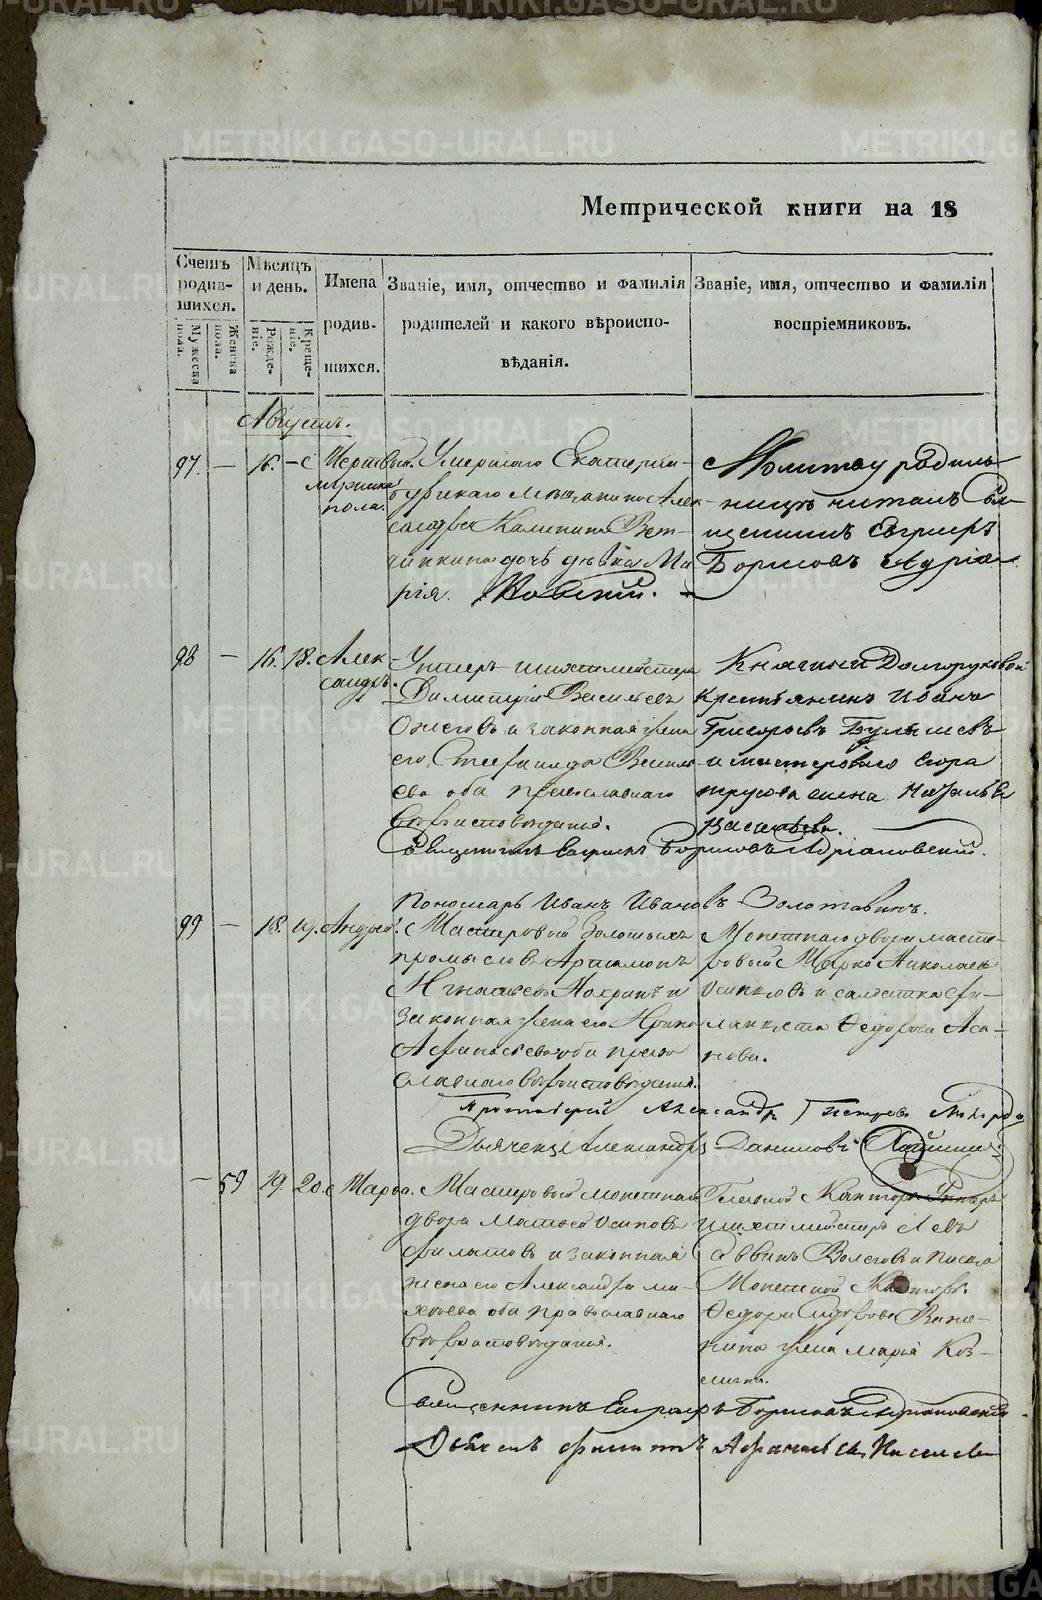 Метрической книги на 18
Счетъ родив-шихся.
Мужеска пола.
Женска пола.
Мѣсяцъ и день.
Рожде-ніе.
Креще-ніе.
Имена родив-шихся.
Званіе, имя, отчество и фамилія родителей и какого вѣроиспо-вѣданія.
Званіе, имя, отчество и фамилія воспріемниковъ.
Августъ.
97. — 16. —
Мертвый
мужска
пола.
Умершаго Екатерин-
бургскаго мѣщанина Алек-
сандра Калинина Вет-
чинкина дочь дѣвка Ма
рія.
Молитву родиль
ницѣ читалъ Свя
щенникъ Евграфъ
Борисовъ Адріа
новскій.
98 — 16. 18.
Алек
сандръ.
Унтеръ шихтмейстеръ
Димитрій Васильевъ
и законная жена
его Степанида Василь
ева оба православнаго
вѣроисповѣданія.
Княгини Долгоруковой
крестьянинъ Иванъ
Григорьевъ
и мастероваго Егора
жена Наталья
Васильева.
Священникъ Евграфъ Борисовъ Адріановскій.
Пономарь Иванъ Ивановъ Золотавинъ.
99 — 18. 19. Андрей.
Мастеровый Золотыхъ
промысловъ Артамонъ
Игнатьевъ и
законная жена его Ирина
Афанасьева оба право
славнаго вѣроисповѣданія.
Монетнаго двора масте-
ровый Марко Николаевъ
Осиповъ и солдатка
Федорова Аса-
нова.
Протоіерей Александръ Петровъ
Дьячекъ Александръ Даниловъ
— 59 19 20. Марфа.
Мастеровый монетнаго
двора Матвей Осиповъ
Филатовъ и законная
жена его Александра Ми-
хеева оба православнаго
вѣроисповѣданія.
Главной Канторы Унтеръ
шихтмейстеръ Левъ
Саввинъ Волеговъ и писца
Монетной Канторы
Федора
жена Марья Коз-
мина.
Священникъ Евграфъ Борисовъ Адріановскій.
Дьячекъ Филиппъ Афанасьевъ Киселевъ
METRIKI.GASO-URAL.RU